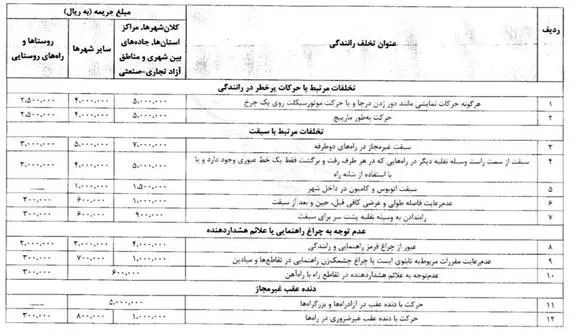 ردیف عنوان تخلف رانندگی مبلغ جریمه (به ریال)
کلان‌شهرها، مراکز استان‌ها، جاده‌های بین شهری و مناطق آزاد تجاری-صنعتی
سایر شهرها
روستاها و راه‌های روستایی
تخلفات مرتبط با حرکات پرخطر در رانندگی
۱ هرگونه حرکات نمایشی مانند دور زدن درجا و یا حرکت موتورسیکلت روی یک چرخ ۵,۰۰۰,۰۰۰ ۴,۰۰۰,۰۰۰ ۲,۵۰۰,۰۰۰
۲ حرکت به‌طور مارپیچ ۵,۰۰۰,۰۰۰ ۴,۰۰۰,۰۰۰ ۲,۵۰۰,۰۰۰
تخلفات مرتبط با سبقت
۳ سبقت غیرمجاز در راه‌های دوطرفه ۷,۰۰۰,۰۰۰ ۵,۰۰۰,۰۰۰ ۳,۰۰۰,۰۰۰
۴ سبقت از سمت راست وسیله نقلیه دیگر در راه‌هایی که در هر طرف رفت و برگشت فقط یک خط عبوری وجود دارد و یا
با استفاده از شانه راه ۵,۰۰۰,۰۰۰ ۴,۰۰۰,۰۰۰ ۳,۰۰۰,۰۰۰
۵ سبقت اتوبوس و کامیون در داخل شهر ۱,۵۰۰,۰۰۰ ۱,۰۰۰,۰۰۰ ___
۶ عدم‌رعایت فاصله طولی و عرضی کافی قبل، حین و بعد از سبقت ۱,۰۰۰,۰۰۰ ۶۰۰,۰۰۰
۷ راه‌ندادن به وسیله نقلیه پشت سر برای سبقت ۹۰۰,۰۰۰ ۶۰۰,۰۰۰ ۳۰۰,۰۰۰
عدم توجه به چراغ راهنمایی یا علائم هشداردهنده
۸ عبور از چراغ قرمز راهنمایی و رانندگی ۴,۰۰۰,۰۰۰ ۳,۰۰۰,۰۰۰ ۲,۰۰۰,۰۰۰
۹ عدم‌رعایت مقررات مربوط‌به تابلوی ایست یا چراغ چشمک‌زن راهنمایی در تقاطع‌ها و میادین ۱,۰۰۰,۰۰۰ ۷۰۰,۰۰۰ ۳۰۰,۰۰۰
۱۰ عدم‌توجه به علائم هشداردهنده در تقاطع راه با راه‌آهن ۶۰۰,۰۰۰ ۳۰۰,۰۰۰
دنده عقب غیرمجاز
۱۱ حرکت با دنده عقب در آزادراه‌ها و بزرگراه‌ها ۵,۰۰۰,۰۰۰ ___
۱۲ حرکت با دنده عقب غیرضروری در راه‌ها ۱,۰۰۰,۰۰۰ ۸۰۰,۰۰۰ ۳۰۰,۰۰۰